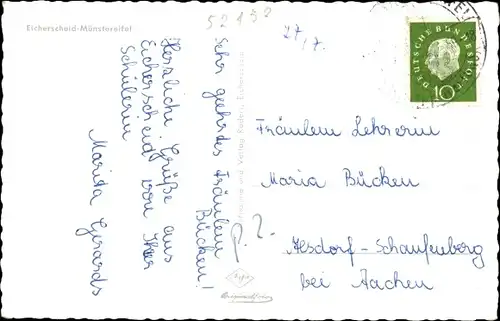 Eicherscheid-Münstereifel
52152
27/7.
Sehr geehrtes Fräulein
Bücken!
Herzliche Grüße aus
Eicherscheid von Ihrer
Schülerin
Marita Gerards
p. 2.
Agfa
Originalfoto
DEUTSCHE BUNDESPOST
10
Fräulein Lehrerin
Maria Bücken
Alsdorf-Schaufenberg
bei Aachen